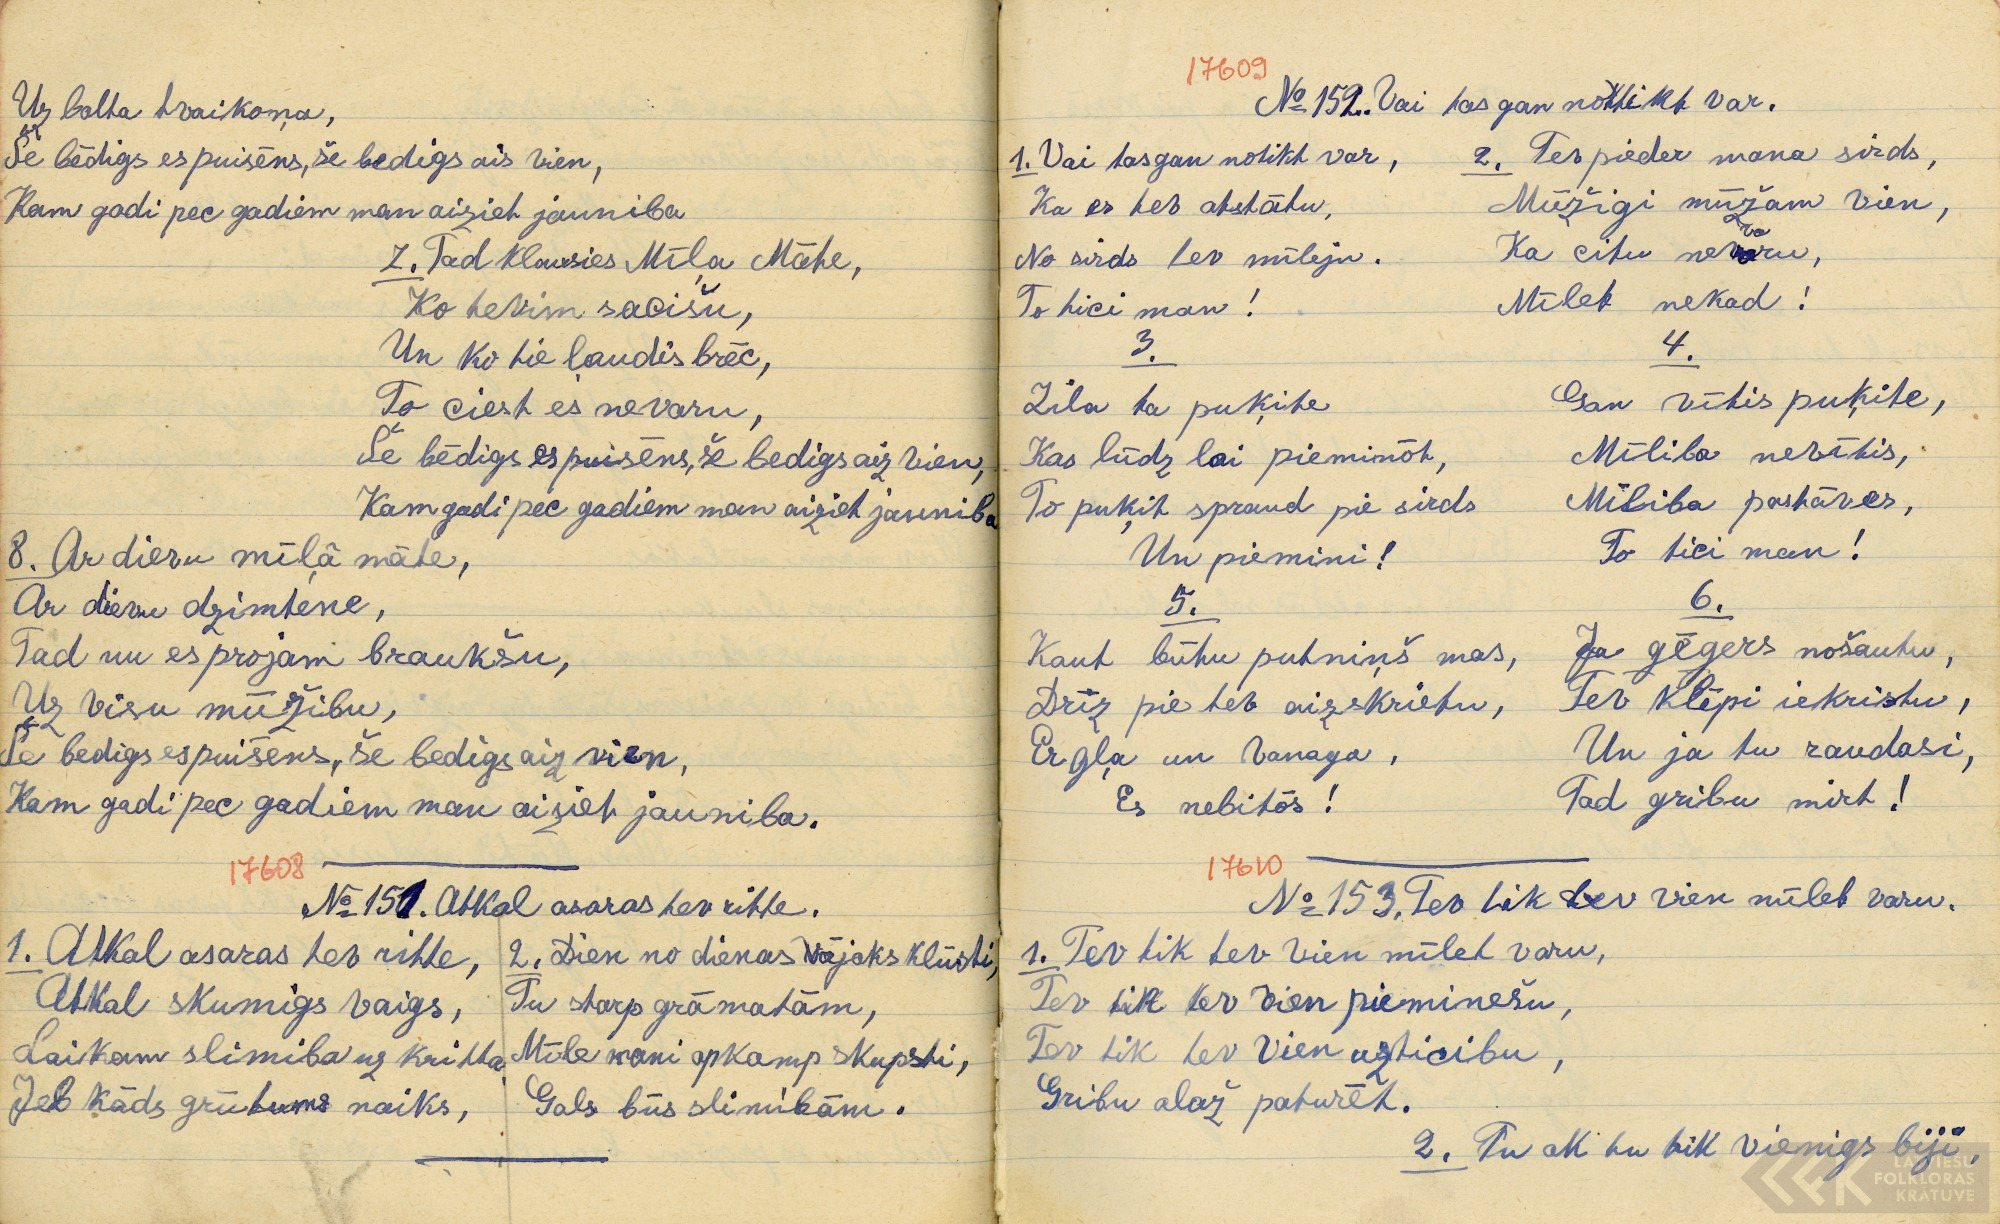 Uz balta tvaikoņa,
Še bēdigs es puisēns, še bedigs ais vien,
Kam gadi pec gadiem man aiziet jauniba
7. Tad klausies Mīļa Māte,
Ko tevim sacišu,
Un ko tie ļaudis brēc,
To ciest es nevaru,
Še bēdigs es puisēns, še bedigs aiz vien,
Kam gadi pec gadiem man aiziet jauniba
8. Ar dievu mīļā māte,
Ar dievu dzimtene,
Tad nu es projam braukšu,
Uz visu mūžibu,
Še bedigs es puisens, še bedigs aiz vien,
Kam gadi pec gadiem man aiziet jauniba.
17608
№ 151. Atkal asaras tev ritte.
1. Atkal asaras tev ritte,
Atkal skumigs vaigs,
Laikam slimiba uz kritta
Jeb kāds grūtums naiks,
2. Dien no dienas vājaks klūsti,
Tu starp grāmatām,
Mīle nani apkamp skupsti,
Gals būs slimibām.
17609
№ 152. Vai tas gan notikt var.
1. Vai tas gan notikt var,
Ka es tev atstātu,
No sirds tev mīleju.
To tici man!
2. Tev pieder mana sirds,
Mūžigi mūžam vien,
Ka citu nevaru,
Mīlet nekad!
3.
Zila ta puķite
Kas lūdz lai pieminōt,
To puķit spraud pie sirds
Un piemini!
4.
Gan vītis puķite,
Mīliba nevītis,
Mīliba pastāves,
To tici man!
5.
Kaut būtu putniņš mas,
Drīz pie tev aizskrietu,
Ergļa un vanaga,
Es nebitōs!
6.
Ja gēgers nošautu,
Tev klēpi iekristu,
Un ja tu raudasi,
Tad gribu mirt!
17610
№ 153. Tev tik tev vien mīlet varu.
1. Tev tik tev vien mīlet varu,
Tev tik tev vien pieminešu,
Tev tik tev vien uzticibu,
Gribu alaž paturēt.
2. Tu ak tu tik vienigs biji,
LATVIEŠU
FOLKLORAS
KRĀTUVE